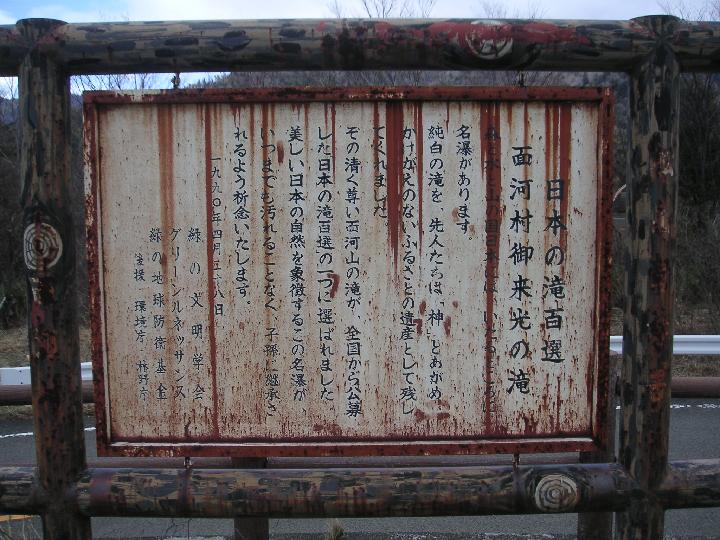 日本の滝百選
面河村御来光の滝
水と山の国日本には、いたるところに
名瀑があります。
純白の滝を、先人たちは、「神」とあがめ
かけがえのないふるさとの遺産として残し
てくれました。
その清く尊い面河山の滝が、全国から公募
した日本の滝百選の一つに選ばれました
美しい日本の自然を象徴するこの名瀑が、
いつまでも汚れることなく、子孫に継承さ
れるよう祈念いたします。
一九九〇年四月二十八日
緑の文明学会
グリーンルネッサンス
緑の地球防衛基金
後援 環境庁、林野庁